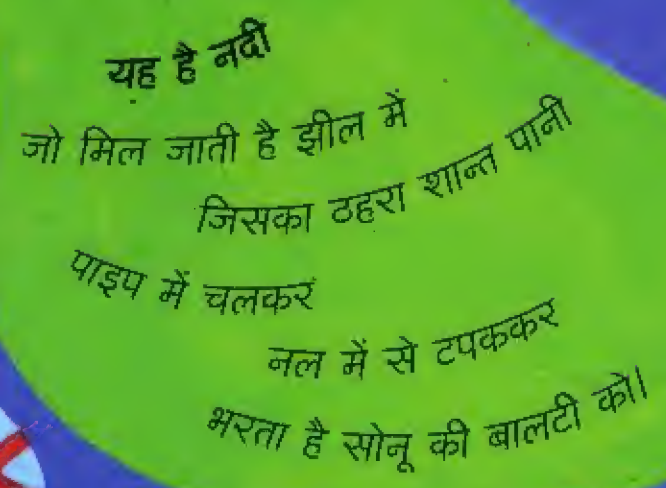 यह है नदी
जो मिल जाती है झील में
जिसका ठहरा शान्त पानी
पाइप में चलकर
नल में से टपककर
भरता है सोनू की बालटी को।